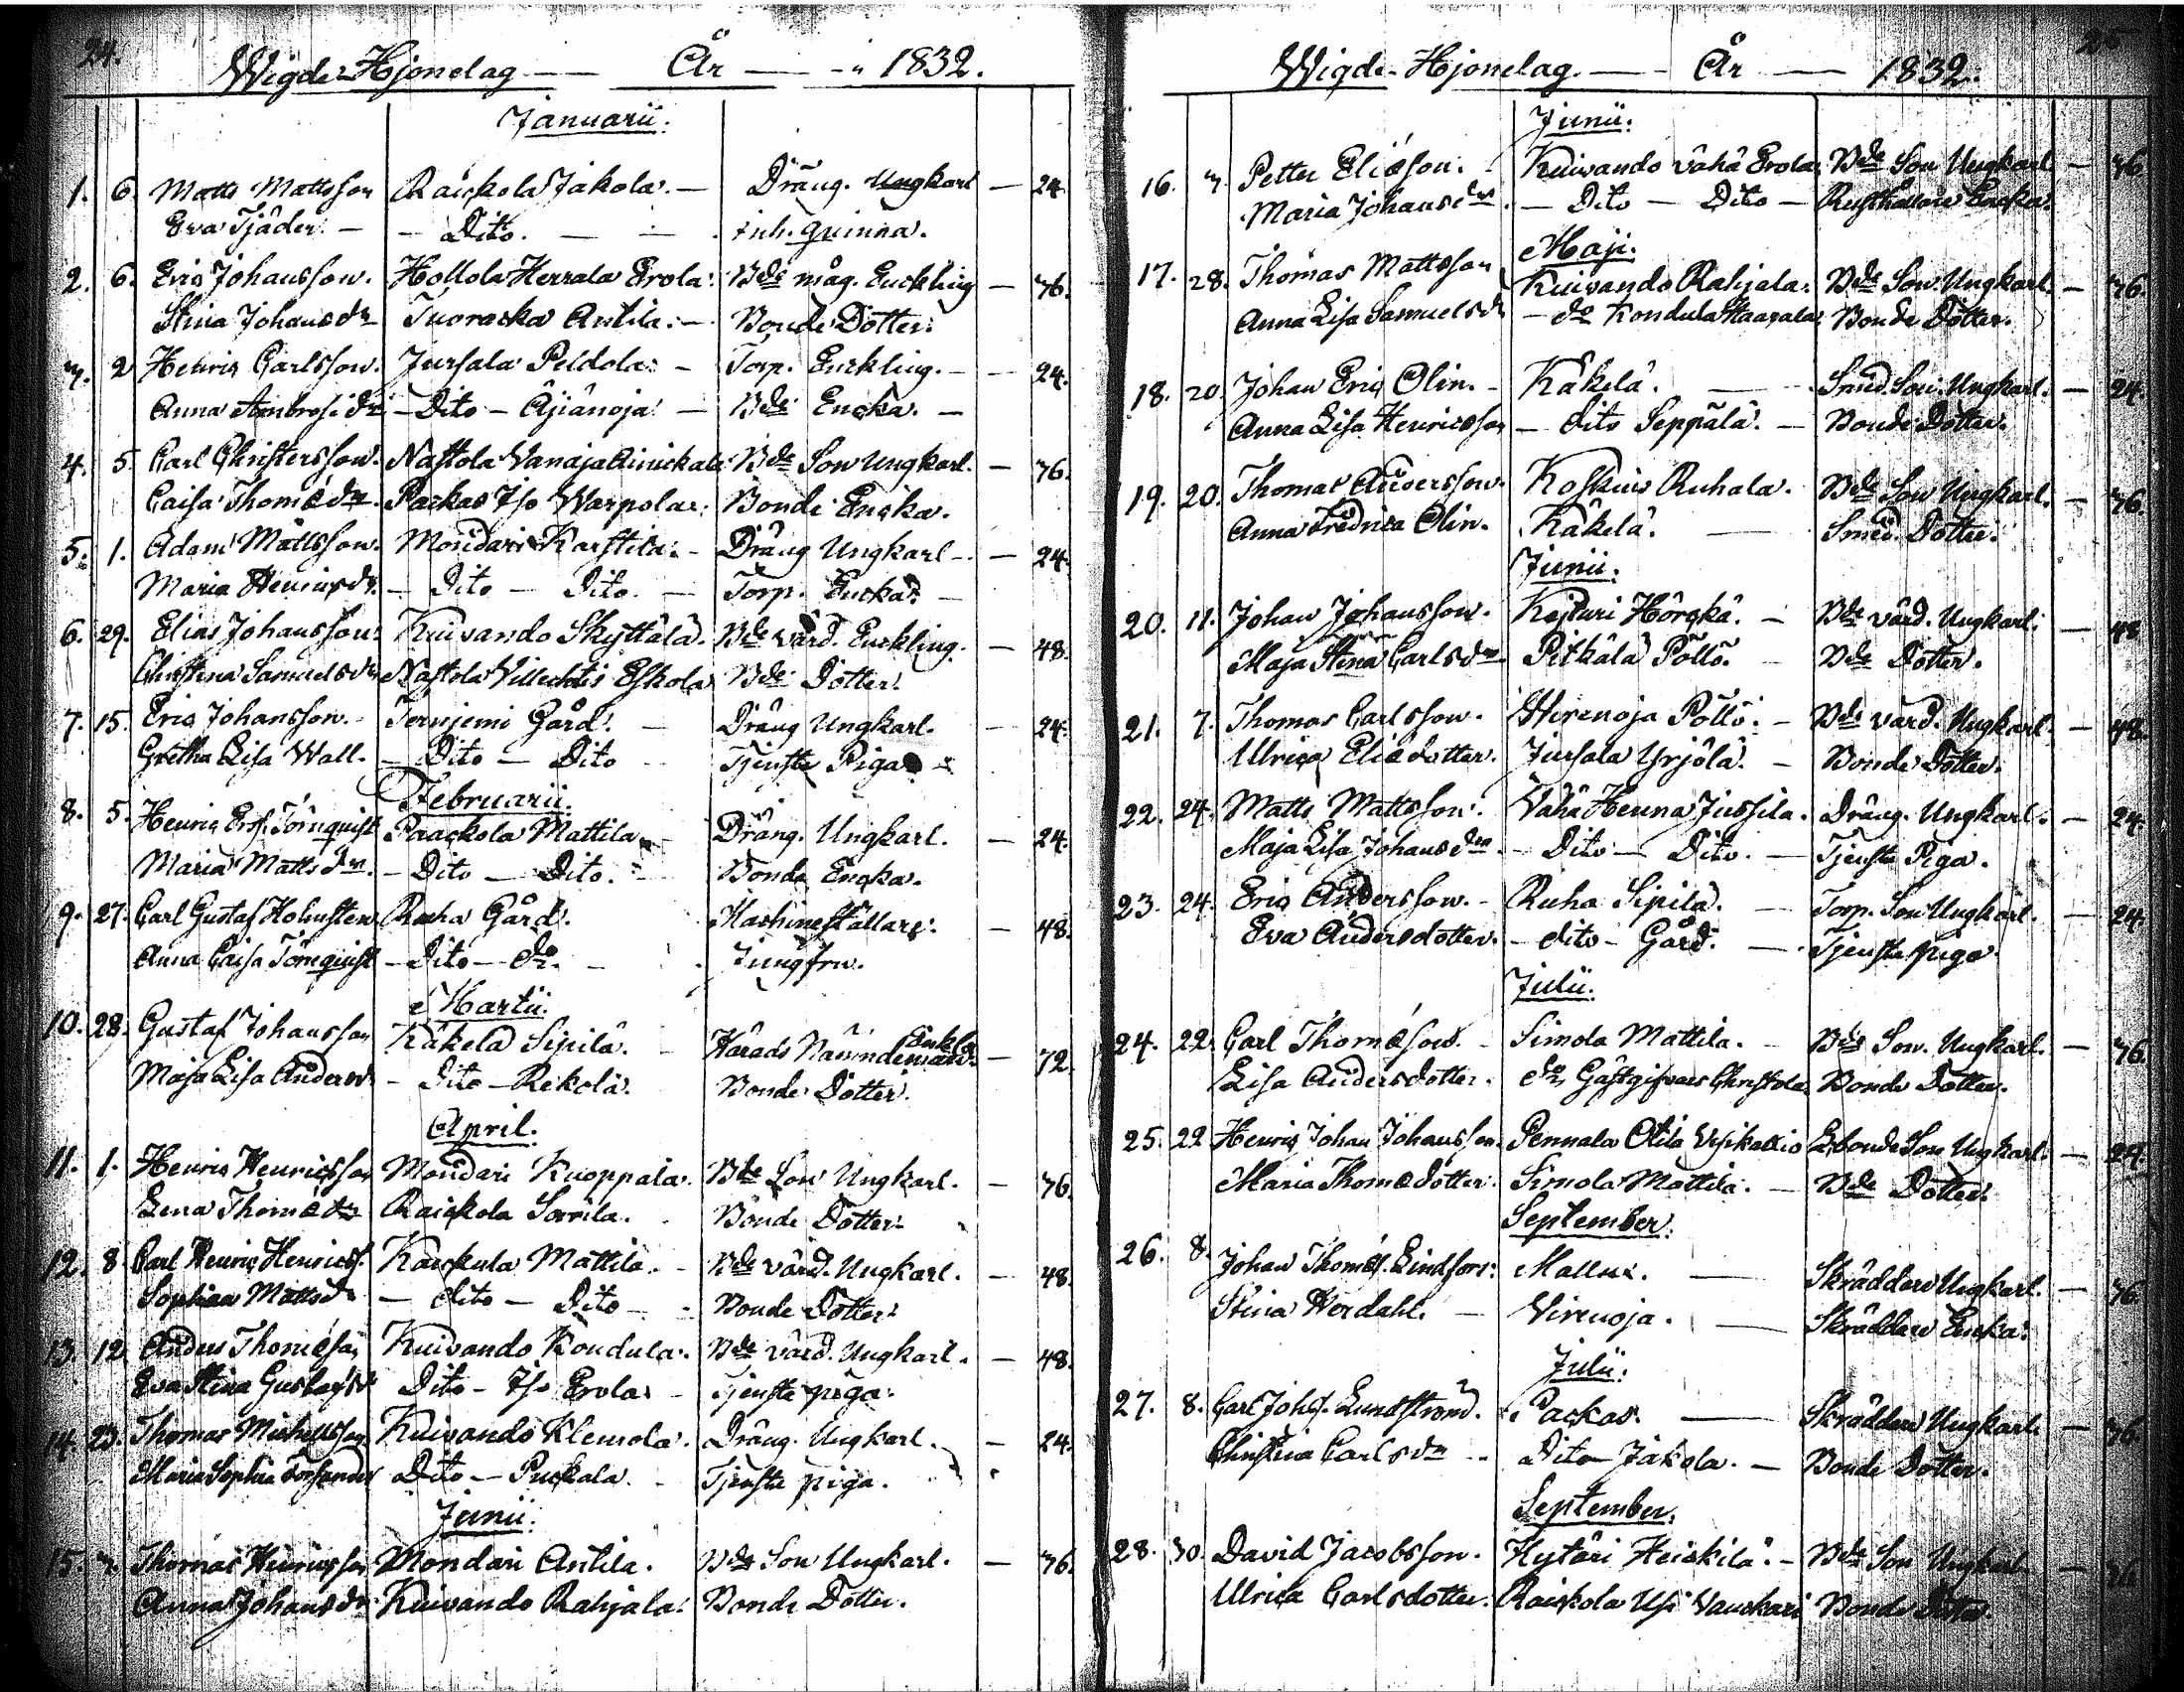 24.
Wigde Hjonelag — År — 1832.
Januarii.
1. 6. Matts Mattsson Räickola Jakola. — Dräng. Ungkarl — 24.
Eva Tjäder. — Dito. — inh. quinna.
2. 6. Eric Johansson. Hollola Herrala Erola. Bde måg. Enckling — 36.
Stina Johansdr Tuoraska Antila. — Bonde Dotter.
3. 2 Henric Carlsson. Jursala Peldola. — Torp. Enckling. — 24.
Anna Ambrosi dr — Dito — Äjänoja — Bde Encka. —
4. 5. Carl Christersson. Nastola Vanaja Bde Son Ungkarl. — 36.
Caisa Thomédr. Packas Iso Warpola. Bonde Encka.
5. 1. Adam Mattsson. Mondari Karstila. — Dräng Ungkarl — 24.
Maria Henricsdr. — Dito — Dito. — Torp. Encka. —
6. 29. Elias Johansson. Kuivando Skyttälä. Bde värd. Enckling. — 48.
Christina Samuelsdr Nastola Villechtis Eskola Bde Dotter.
7. 15. Eric Johansson. Terrijemi Gård. — Dräng Ungkarl. — 24.
Gretha Lisa Wall. — Dito — Dito Tjenste Piga.
Februarii.
8. 5. Henric Törnquist Raackola Mattila Dräng. Ungkarl. — 24.
Maria Mattsdr. — Dito — Dito. Bonde Encka.
9. 27. Carl Gustaf Holmsten. Ruha Gård. Maschineställare. — 48.
Anna Caisa Törnquist — Dito — do. Jungfru.
Martii.
10. 28. Gustaf Johansson Käkelä Sipilä. — Härads Nämndeman Enckl. — 72.
Maja Lisa Andersdr — Dito — Rekola. Bonde Dotter.
April.
11. 1. Henric Henricsson Mondari Kuoppala. Bde Son Ungkarl. — 36.
Lena Thomédr Raickola Sorrila. Bonde Dotter.
12. 8 Carl Henric Henricss. Kaickula Mattila. — Bde värd. Ungkarl. — 48.
Sophia Mattsdr — dito — Dito — Bonde Dotter.
13. 12 Anders Thomésson Kuivando Kondula. Bde värd. Ungkarl. — 48.
Eva Stina Gustafsdr Dito — Iso Erola — Tjenste piga.
14. 23. Thomas Michelsson Kuivando Klemola. Dräng. Ungkarl. — 24.
Maria Sophia Dito — Puckala. Tjenste piga.
Junii.
15. 3. Thomas Henricsson Mondari Antila. Bde Son Ungkarl. — 36.
Anna Johansdr Kuivando Rahjala. Bonde Dotter.
25
Wigde Hjonelag. — År — 1832.
Junii.
16. 3. Petter Eliæson. Kuivando Vähä Erola Bde Son Ungkarl — 36.
Maria Johansdr. — Dito — Dito — Rusthållare Encka.
Maji.
17. 28. Thomas Mattsson Kuivando Rahjala. Bde Son Ungkarl. — 36.
Anna Lisa Samuelsdr — do Kondula Bonde Dotter.
18. 20. Johan Eric Olin. — Käkelä. — Smed. Son. Ungkarl. — 24.
Anna Lisa Henricsson — dito Seppälä. — Bonde Dotter.
19. 20. Thomas Andersson. Koskius Ruhala. Bde Son Ungkarl. — 36.
Anna Fredrica Olin. Käkelä. — Smed. Dotter.
Junii.
20. 11. Johan Johansson. Hörskä. — Bde värd. Ungkarl. — 48
Maja Stina Carlsdr Pitkälä Pöllö. — Bde Dotter.
21. 7. Thomas Carlsson. Hirenoja Pöllö. — Bde värd. Ungkarl — 48.
Ulrica Eliædotter. Jursala Yrjölä. — Bonde Dotter.
22. 24. Matts Mattsson. Vähä Henna Jussila. Dräng. Ungkarl. — 24.
Maja Lisa Johansdr — Dito — Dito. — Tjenste Piga.
23. 24. Eric Andersson. — Ruha Sipilä. — Torp. Son Ungkarl. — 24.
Eva Andersdotter. — dito — Gård. — Tjenste piga.
Julii.
24. 22. Carl Thomæson. — Simola Mattila. — Bde Son. Ungkarl. — 36.
Lisa Andersdotter. do Gästgifvars Christola Bonde Dotter.
25. 22 Henric Johan Johansson. Pennala Otila Ungkarl. — 24.
Maria Thomædotter. Simola Mattila. — Bde Dotter.
September.
26. 8. Johan Thomæs. Lindfors. Mallus. — Skräddare Ungkarl. — 36.
Stina Werdahl. — Virenoja. — Skräddare Encka.
Julii.
27. 8. Carl Johs. Lundström. Packas. — Skräddare Ungkarl. — 36.
Christina Carlsdr — Dito Jakola. — Bonde Dotter.
September.
28. 30. David Jacobsson. Hytäri Heickilä. — Bde Son Ungkarl. — 36
Ulrica Carlsdotter. Raickola Usi Bonde Dotter.